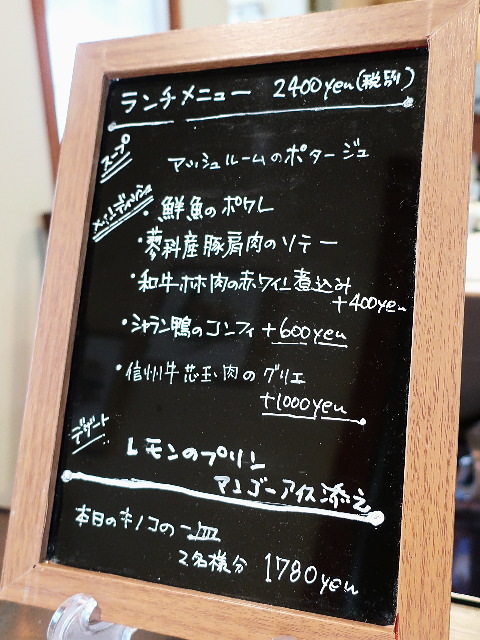 ランチメニュー 2400yen(税別)
スープ
マッシュルームのポタージュ
メインディッシュ
・鮮魚のポワレ
・蓼科産豚肩肉のソテー
・和牛ホホ肉の赤ワイン煮込み
+400yen
・シャラン鴨のコンフィ +600yen
・信州牛芯玉肉のグリエ
+1000yen
デザート
レモンのプリン
マンゴーアイス添え
本日のキノコの一皿
2名様分 1780yen